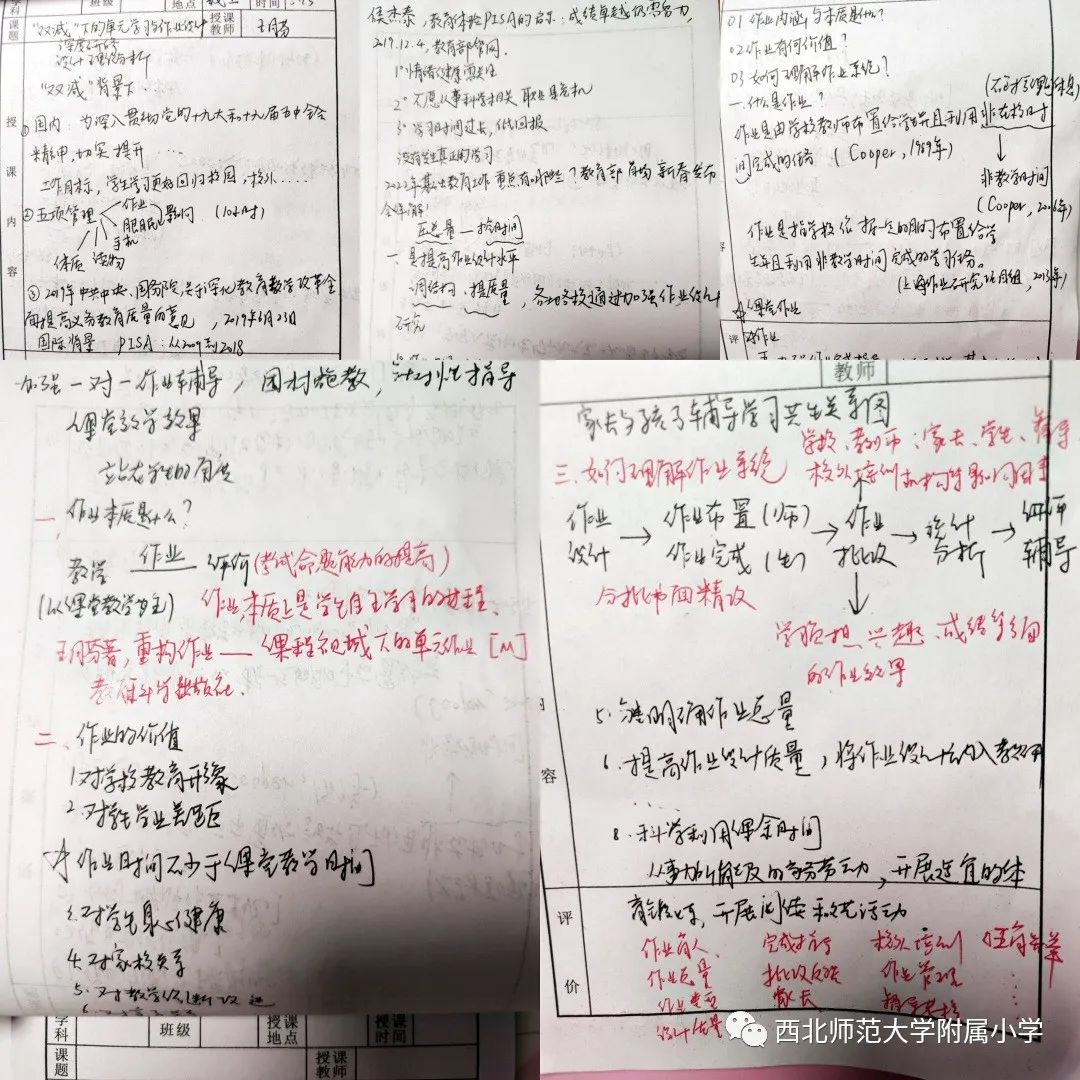 课题
"双减"下的单元学习与作业设计
授课教师
王月芬
地点
时间
"双减"背景下
授课内容
①国内：为深入贯彻党的十九大和十九届五中全会
精神，切实提升……
工作目标，学生学习更好回归校园，校外……
②五项管理
作业
睡眠
手机
读物
体质
③2019年中共中央、国务院，关于深化教育教学改革全
面提高义务教育质量的意见，2019年6月23日
国际背景 PISA：从2009到2018
2019.12.4，教育部官网.
1°情绪健康需关注
2°不愿从事科学相关职业是危机
3°学习时间过长，低回报
没有学生真正的学习
2022年基础教育工作重点有哪些？教育部首场新春发布
会详解！
压总量—控时间
一是提高作业设计水平
调结构、提质量，各地各校通过加强作业设计
研究
01 作业内涵与本质是什么？
02 作业有何价值？
03 如何理解作业系统？
一、什么是作业？
作业是由学校教师布置给学生并且利用非在校时
间完成的任务（Cooper，1989年）
非教学时间
（Cooper，2006年）
作业是指学校依据一定的目的布置给学
生并且利用非教学时间完成的学习任务。
☆课堂作业
评
加强一对一作业辅导，因材施教，针对性指导
课堂教学效果
站在学生的角度
一、作业本质是什么？
教学 作业 评价(考试命题能力的提高)
(以课堂教学为主)
作业，本质上是学生自主学习的过程.
王月芬著，重构作业——课程视域下的单元作业[M]
教育科学出版社.
二、作业的价值
1.对学校教育形象
2.对学生学业差距
☆作业时间不少于课堂教学时间
3.对学生身心健康
4.对家校关系
5.对教学诊断改进
学科
班级
授课地点
授课时间
课题
授课教师
教师
家长与孩子辅导学习共生关系图
学校、教师、家长、学生、
三、如何理解作业系统
校外培训机构等影响因素
作业设计 → 作业布置(师) 作业完成(生) → 作业批改 → 统计分析 → 讲评辅导
分批书面精改
学业负担、兴趣、成绩等多方面
的作业效果
5.明确作业总量
6.提高作业设计质量，将作业设计纳入教研
....
8.科学利用课余时间
从事力所能及的家务劳动，开展适宜的体
内容
评价
育锻炼，开展阅读和文艺活动
作业育人 完成指导 校外培训
作业总量 批改反馈 作业管理
作业类型 家长
设计质量
西北师范大学附属小学